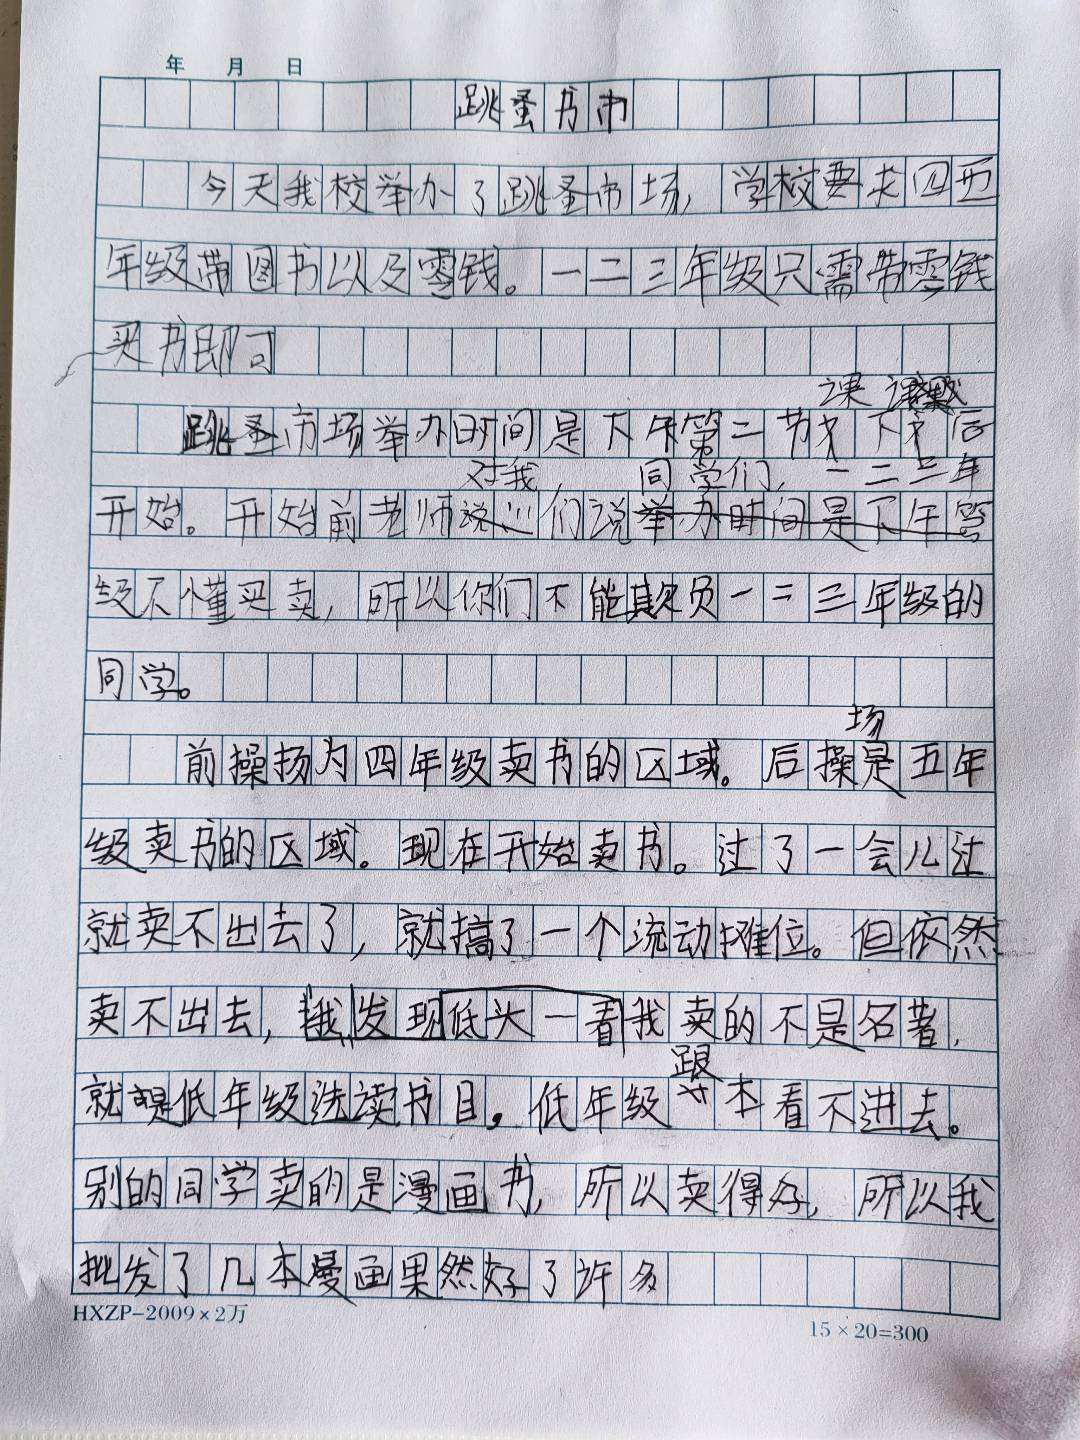 年 月 日
跳蚤书市
今天我校举办了跳蚤市场,学校要求四五
年级带图书以及零钱。一二三年级只需带零钱
买书即可
课
跳蚤市场举办时间是下午第二节 下 后
对我, 同学们,一二三年
开始。开始前老师说 们说举办时间是下午
级不懂买卖,所以你们不能欺负一二三年级的
同学。
场
前操扬为四年级卖书的区域。后操是五年
级卖书的区域。现在开始卖书。过了一会儿过
就卖不出去了,就搞了一个流动摊位。但依然
卖不出去,我发现低头一看我卖的不是名著,
跟
就是低年级选读书目。低年级 本看不进去。
别的同学卖的是漫画书,所以卖得好,所以我
批发了几本漫画果然好了许多
HXZP-2009×2万
15×20=300